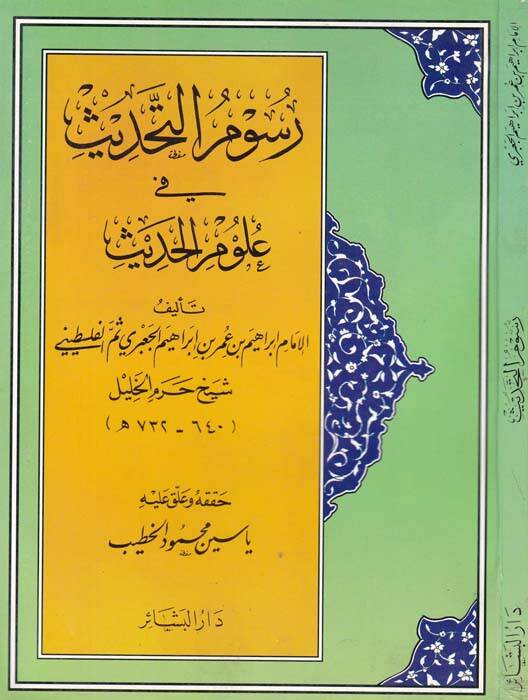 رُسُومُ التَّحْدِيثِ
في
عُلُومِ الحَدِيثِ
تأليف
الإمام إبراهيم بن عمر بن إبراهيم الجعبري ثم الفلسطيني
شيخ حرم الخليل
(٦٤٠ - ٧٣٢ هـ)
حققه وعلق عليه
ياسين محمود الخطيب
دار البشائر
الإمام إبراهيم بن عمر بن إبراهيم الجعبري
رسوم التحديث
دار البشائر